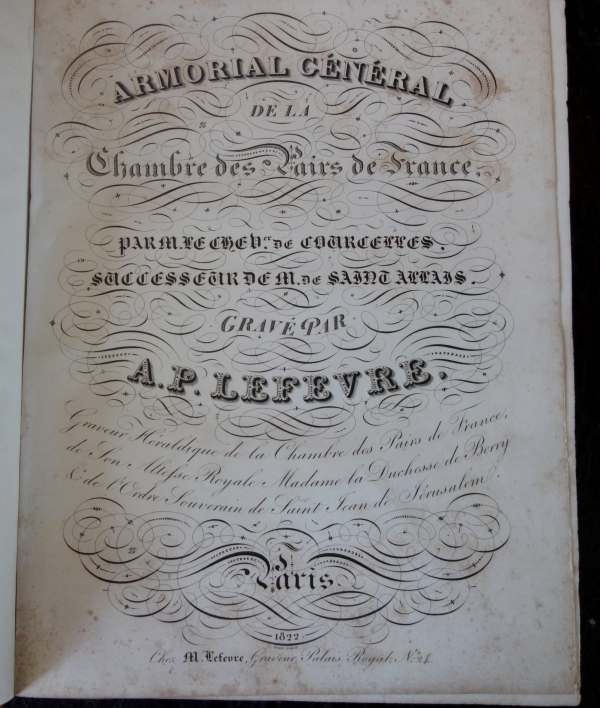 ARMORIAL GÉNÉRAL
DE LA
Chambre des Pairs de France,
PAR M. LE CHEV.er DE COURCELLES.
SUCCESSEUR DE M. DE SAINT ALLAIS.
GRAVÉ PAR
A.P. LEFEVRE.
Graveur Héraldique de la Chambre des Pairs de France,
de Son Altesse Royale Madame la Duchesse de Berry
& de l'Ordre Souverain de Saint Jean de Jérusalem.
Paris.
1822
Chez M. Lefevre, Graveur, Palais Royal, No. 24.